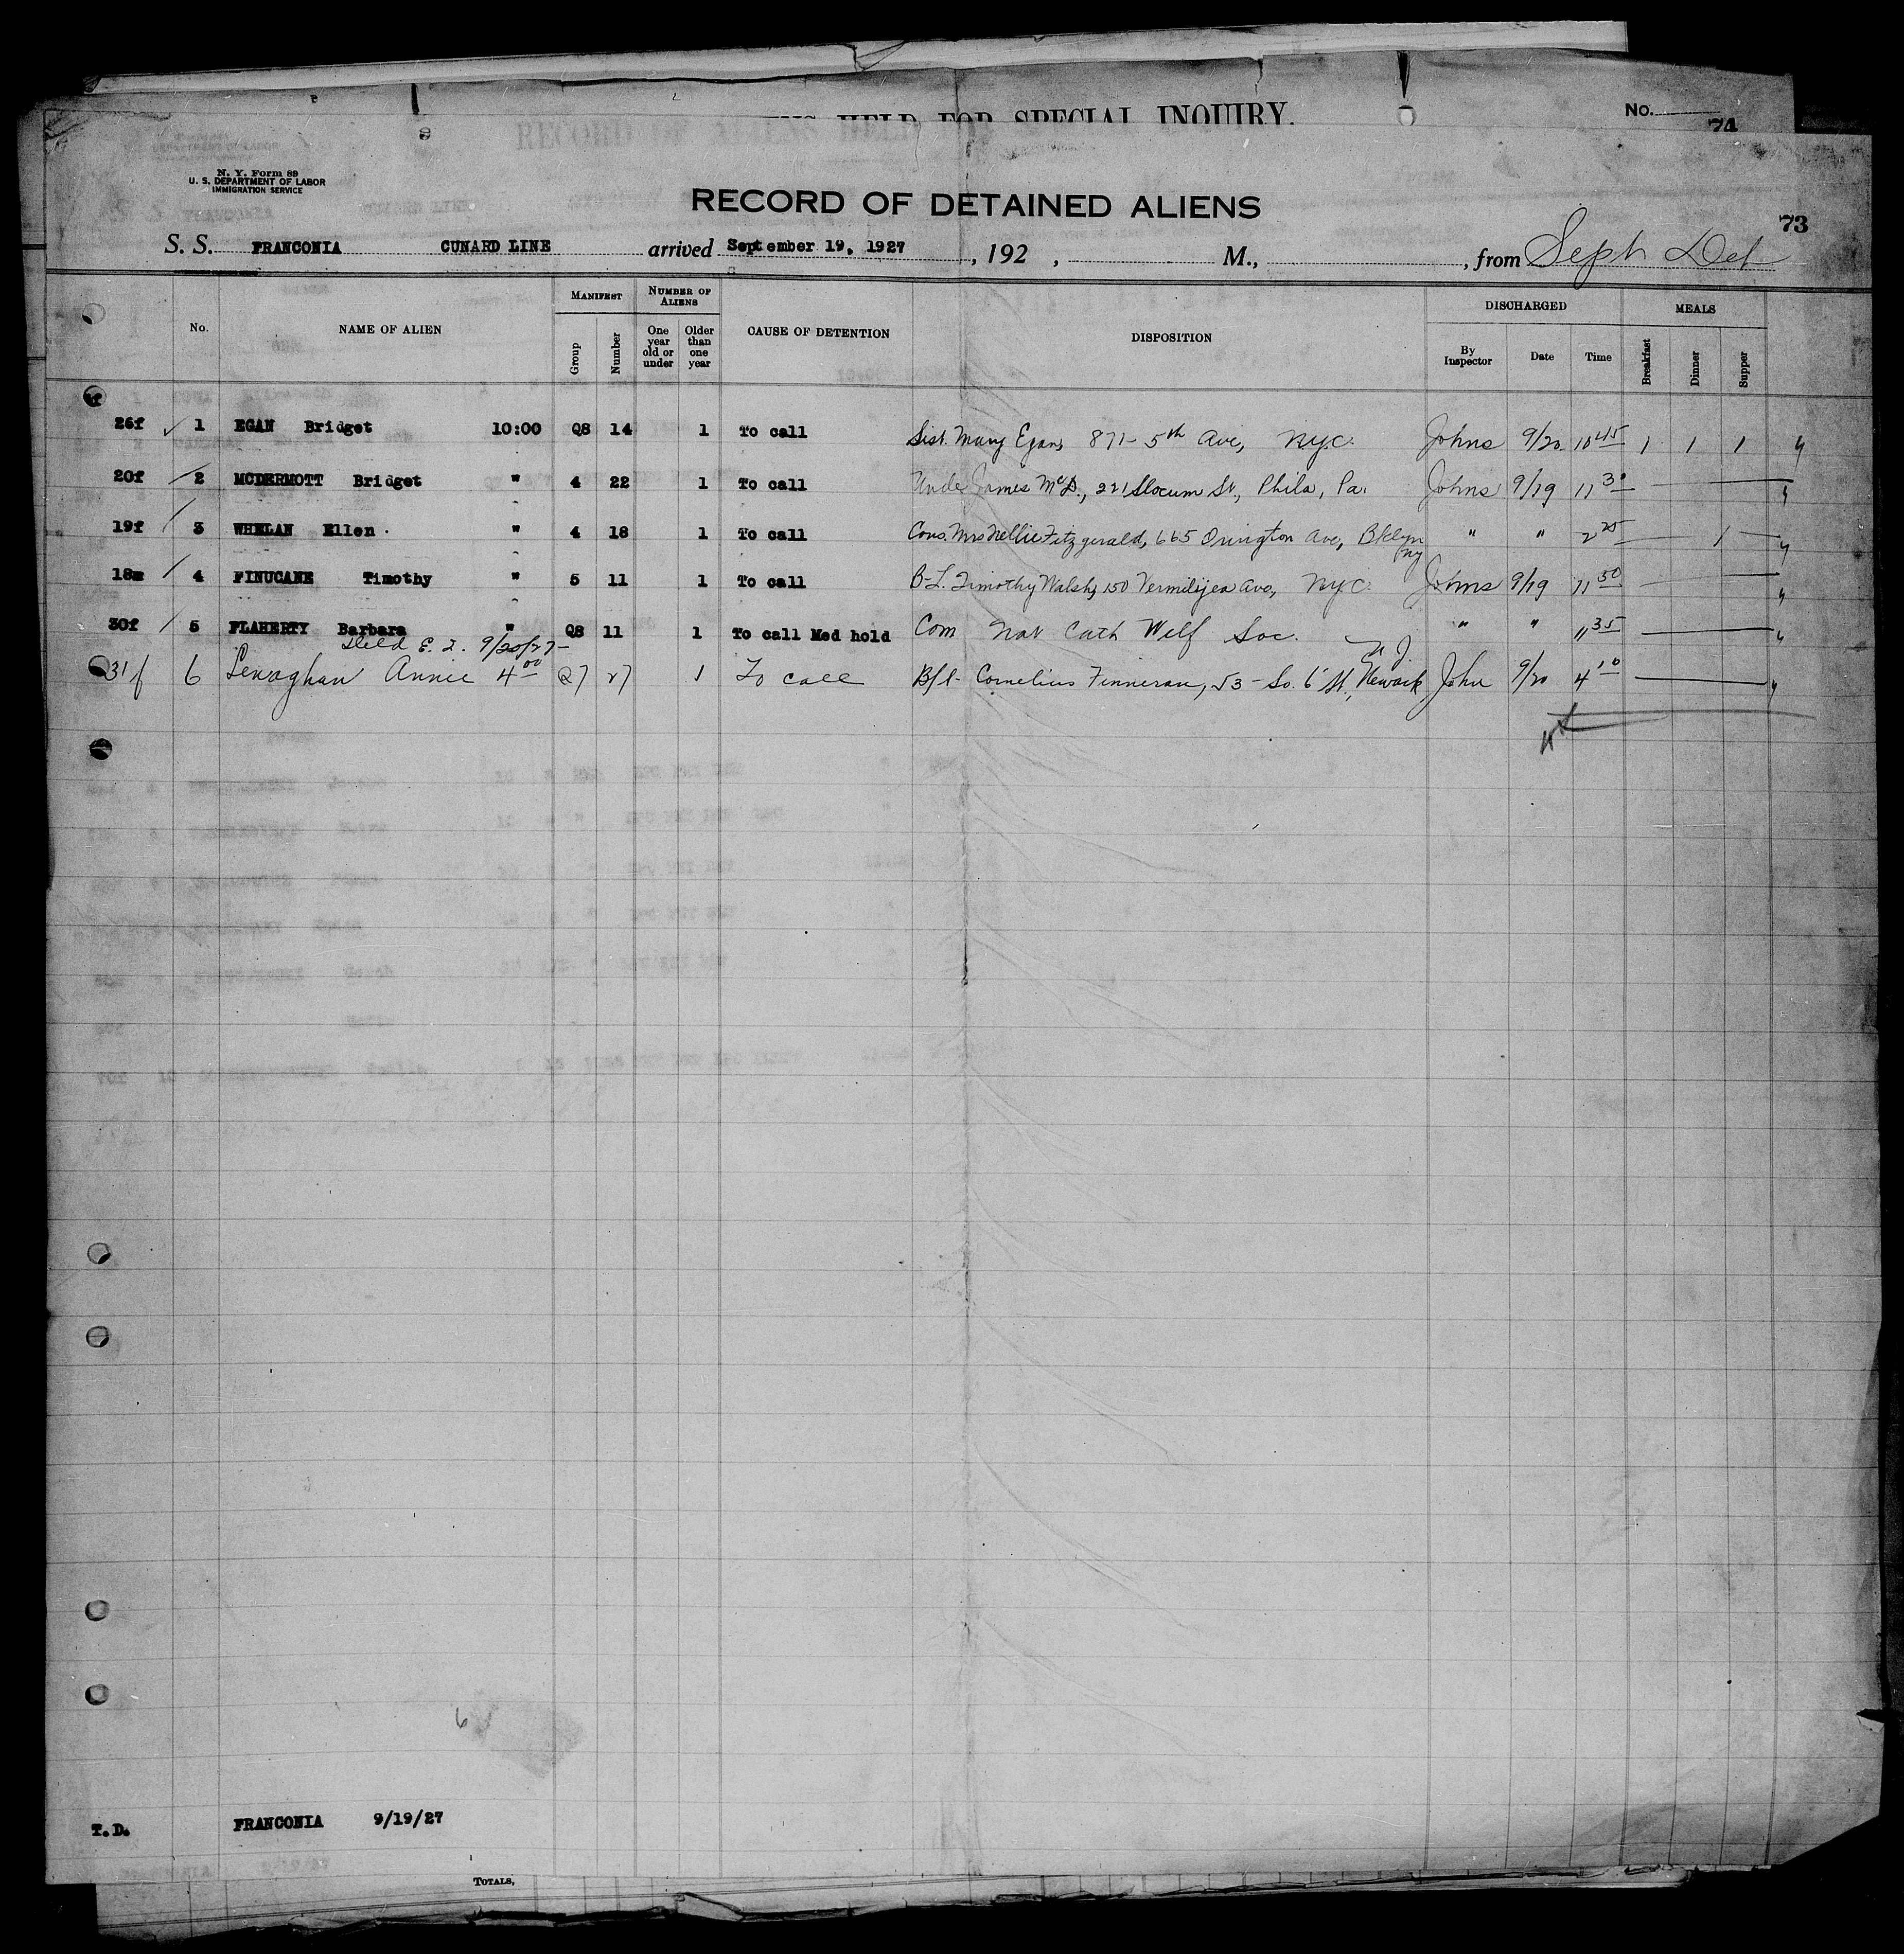 HELD FOR SPECIAL INQUIRY.
No.
74
N. Y. Form 89
U. S. DEPARTMENT OF LABOR
IMMIGRATION SERVICE
RECORD OF DETAINED ALIENS
73
S. S. FRANCONIA CUNARD LINE arrived September 19, 1927, 192 , M., , from
No. NAME OF ALIEN MANIFEST Group Number NUMBER OF ALIENS One year old or under Older than one year CAUSE OF DETENTION DISPOSITION DISCHARGED By Inspector Date Time MEALS Breakfast Dinner Supper
26f 1 EGAN Bridget 10:00 Q8 14 1 To call Sist. Mary Egan, 871- 5th Ave, N.Y.C. Johns 9/20 10 45 1 1 1
20f 2 MCDERMOTT Bridget " 4 22 1 To call Uncle James McD., 221 Slocum St., Phila, Pa. Johns 9/19 11 30
19f 3 WHELAN Ellen " 4 18 1 To call Cous. Mrs Nellie Fitzgerald, 665 Ovington Ave, Bklyn NY " " 2 25 1
18m 4 FINUCANE Timothy " 5 11 1 To call B-L. Timothy Walsh, 150 Vermilyea Ave, N.Y.C. Johns 9/19 11 50
30f 5 FLAHERTY Barbara " Q8 11 1 To call Med hold Com Nat Cath Welf Soc. " " 11 35
Held E. I. 9/20/27-
31f 6 Lenaghan Annie 4 00 Q7 27 1 To call B/l- Cornelius Finneran, 53 - So. 6 St., Newark N J John 9/20 4 10
6
T.D. FRANCONIA 9/19/27
TOTALS,